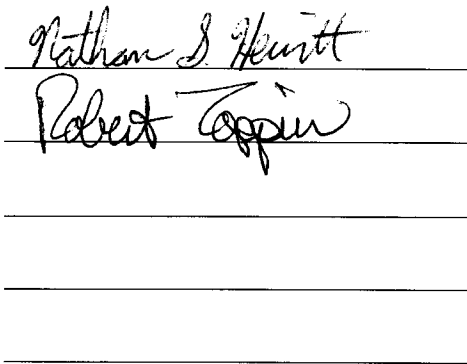 Nathan S. Hewitt
Robert Toppin